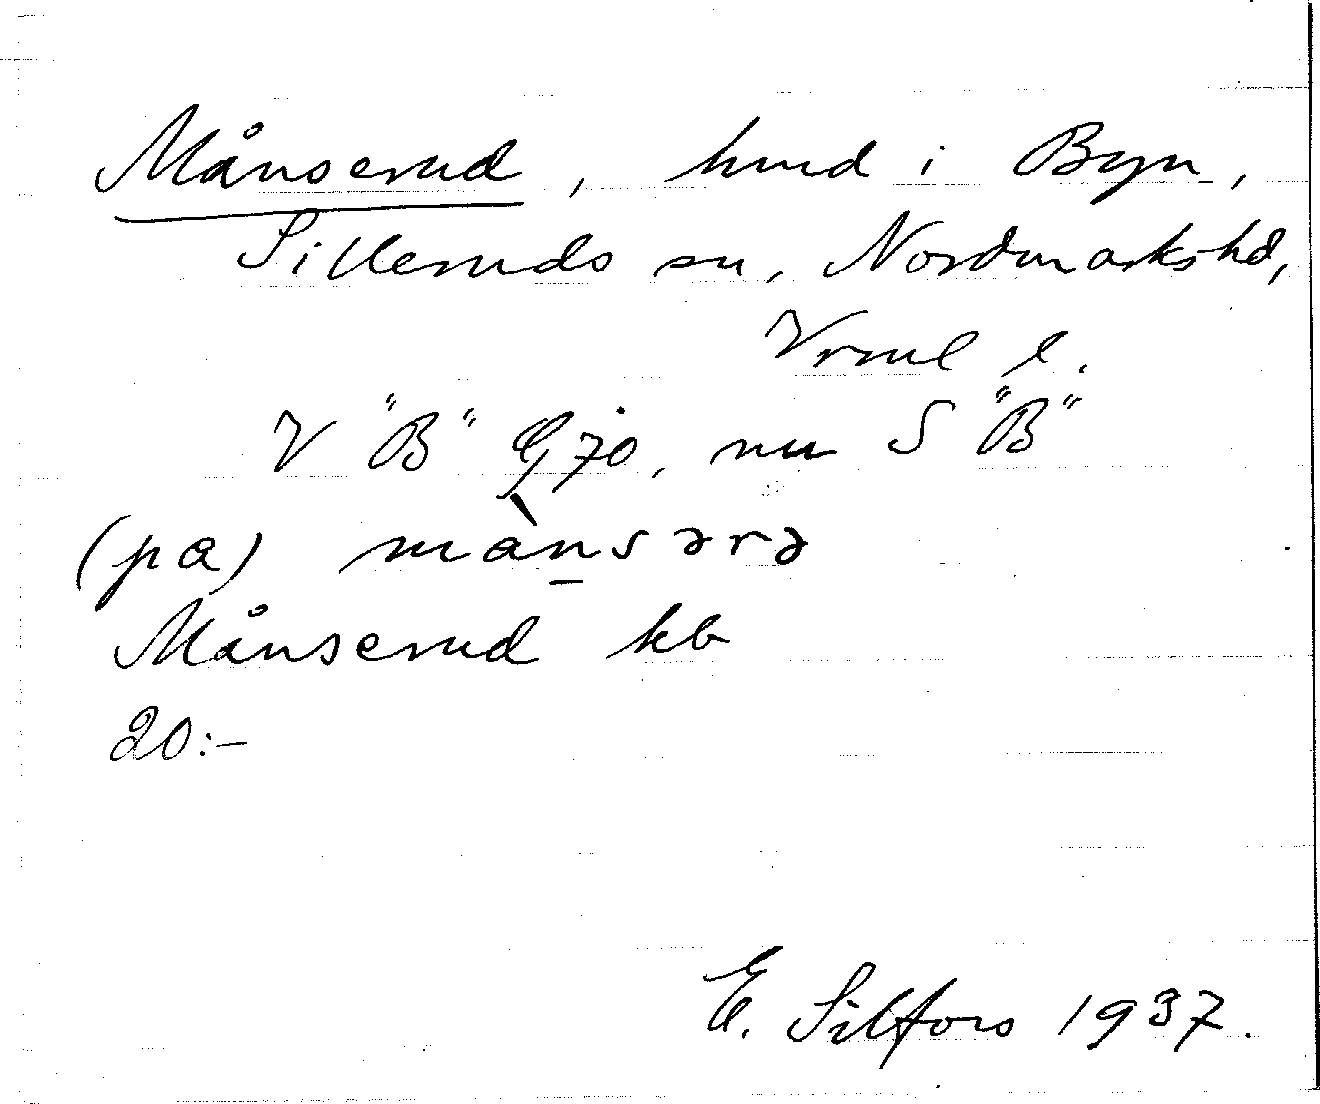 Månserud, hmd i Byn,
Silleruds sn, Nordmarks hd,
Vrml l.
V "B" G70, nu S "B"
(pa) mànsərə
Månserud kb
20:-
E. Silfors 1937.